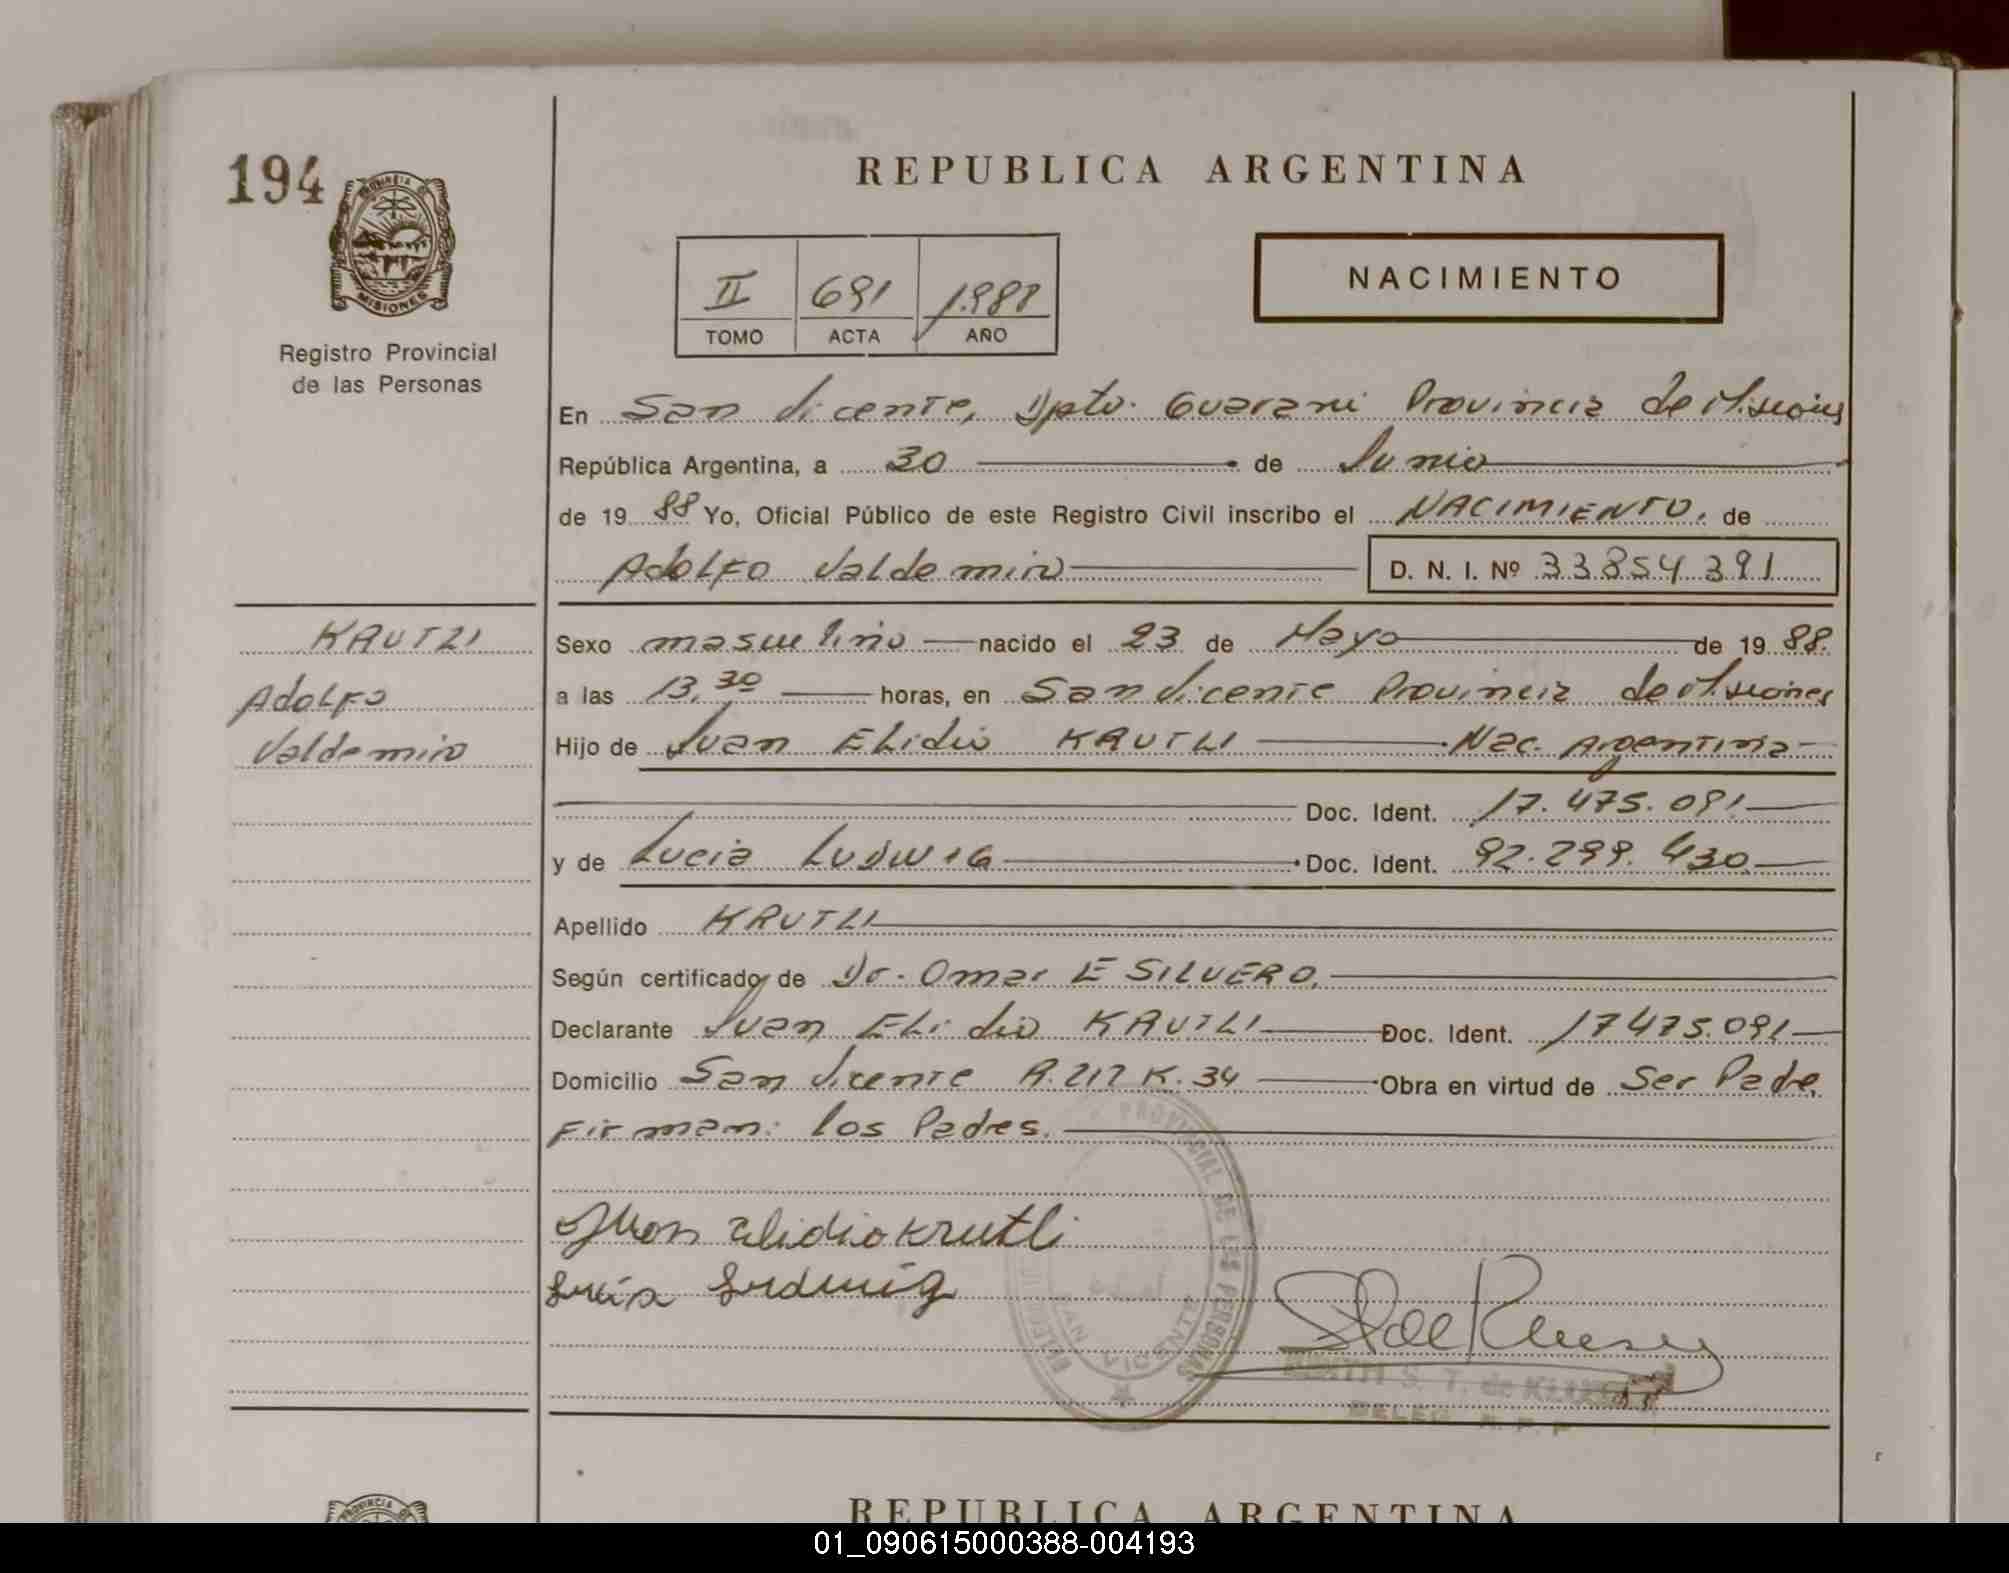 194
PROVINCIA D
MISIONES
Registro Provincial
de las Personas
REPUBLICA ARGENTINA
II 691 1.988
TOMO ACTA AÑO
NACIMIENTO
En San Vicente, Dpto. Guarani Provincia de Misiones
República Argentina, a 30 de Junio
de 19 88 Yo, Oficial Público de este Registro Civil inscribo el NACIMIENTO, de
Adolfo Valdemiro D. N. I. Nº 33854391
KRUTLI
Adolfo
Valdemiro
Sexo masculino nacido el 23 de Mayo de 19 88.
a las 13,30 horas, en San Vicente Provincia de Misiones
Hijo de Juan Elidio KRUTLI Nac. Argentina
Doc. Ident. 17.475.091
y de Lucia Ludwig Doc. Ident. 92.299.430
Apellido KRUTLI
Según certificado de Dr. Omar E SILVERO.
Declarante Juan Elidio KRUTLI Doc. Ident. 17475.091
Domicilio San Vicente R.212 K.34 Obra en virtud de Ser Padre.
Firman: los Padres.
Juan Elidio Krutli
Lucia Ludwig
PROVINCIAL DE LAS PERSONAS
SAN VICENTE
S. T. de
DELEG. R. P. P
REPUBLICA ARGENTINA
01_090615000388-004193